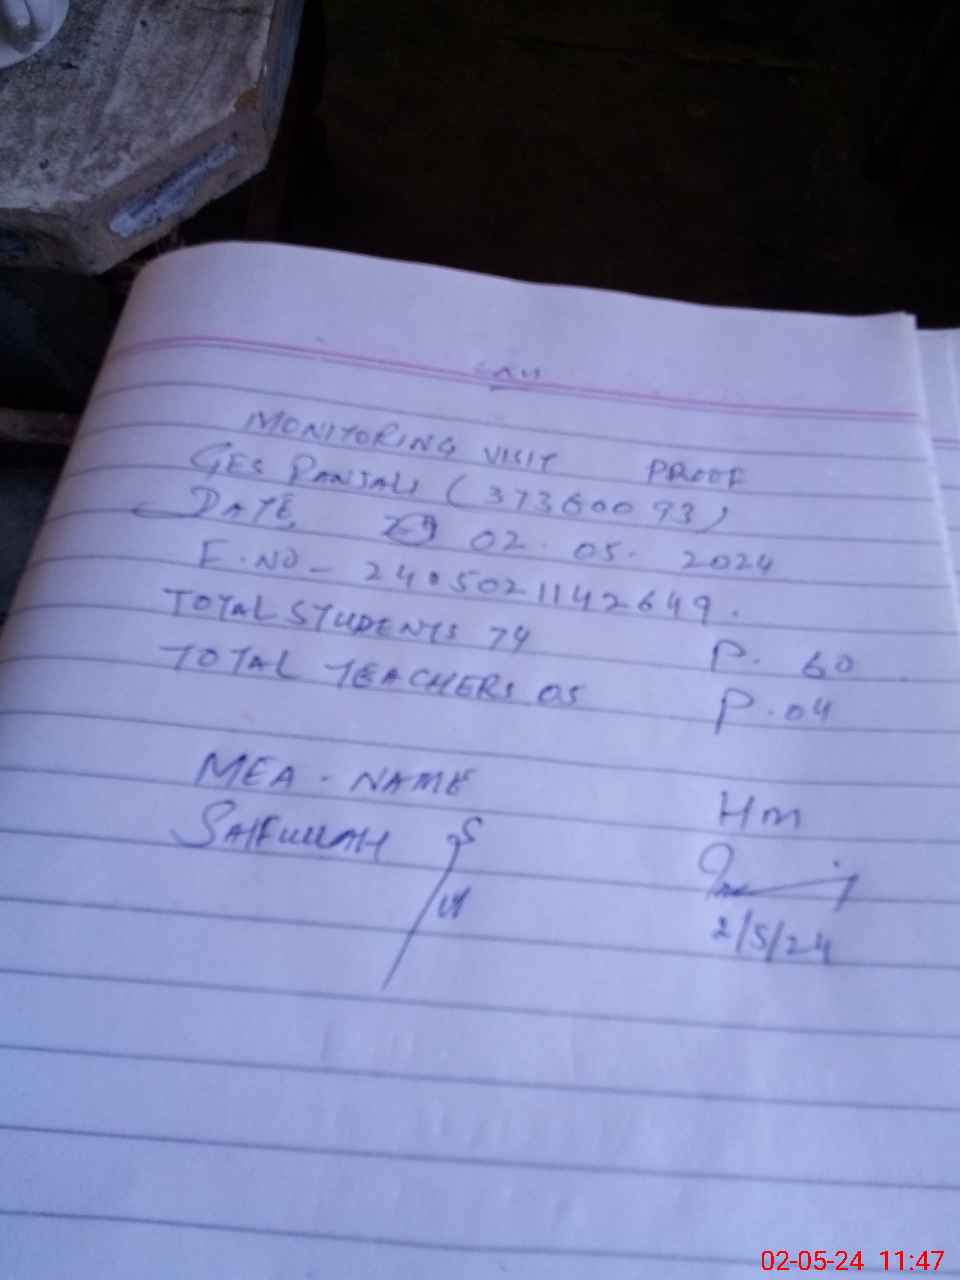 MONITORING VISIT PROOF
GES PANJALI (37360093)
DATE 02.05.2024
E.NO- 2405021142649.
TOTAL STUDENTS 74 P. 60
TOTAL TEACHERS 05 P.04
MEA. NAME Hm
SAIFULLAH
2/5/24
02-05-24 11:47